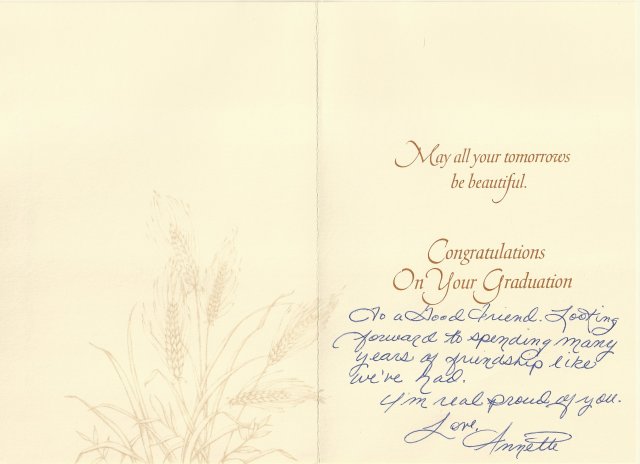 May all your tomorrows
be beautiful.
Congratulations
On Your Graduation
To a Good Friend. Looking
forward to spending many
years of friendship like
we've had.
I'm real proud of you.
Love,
Annette